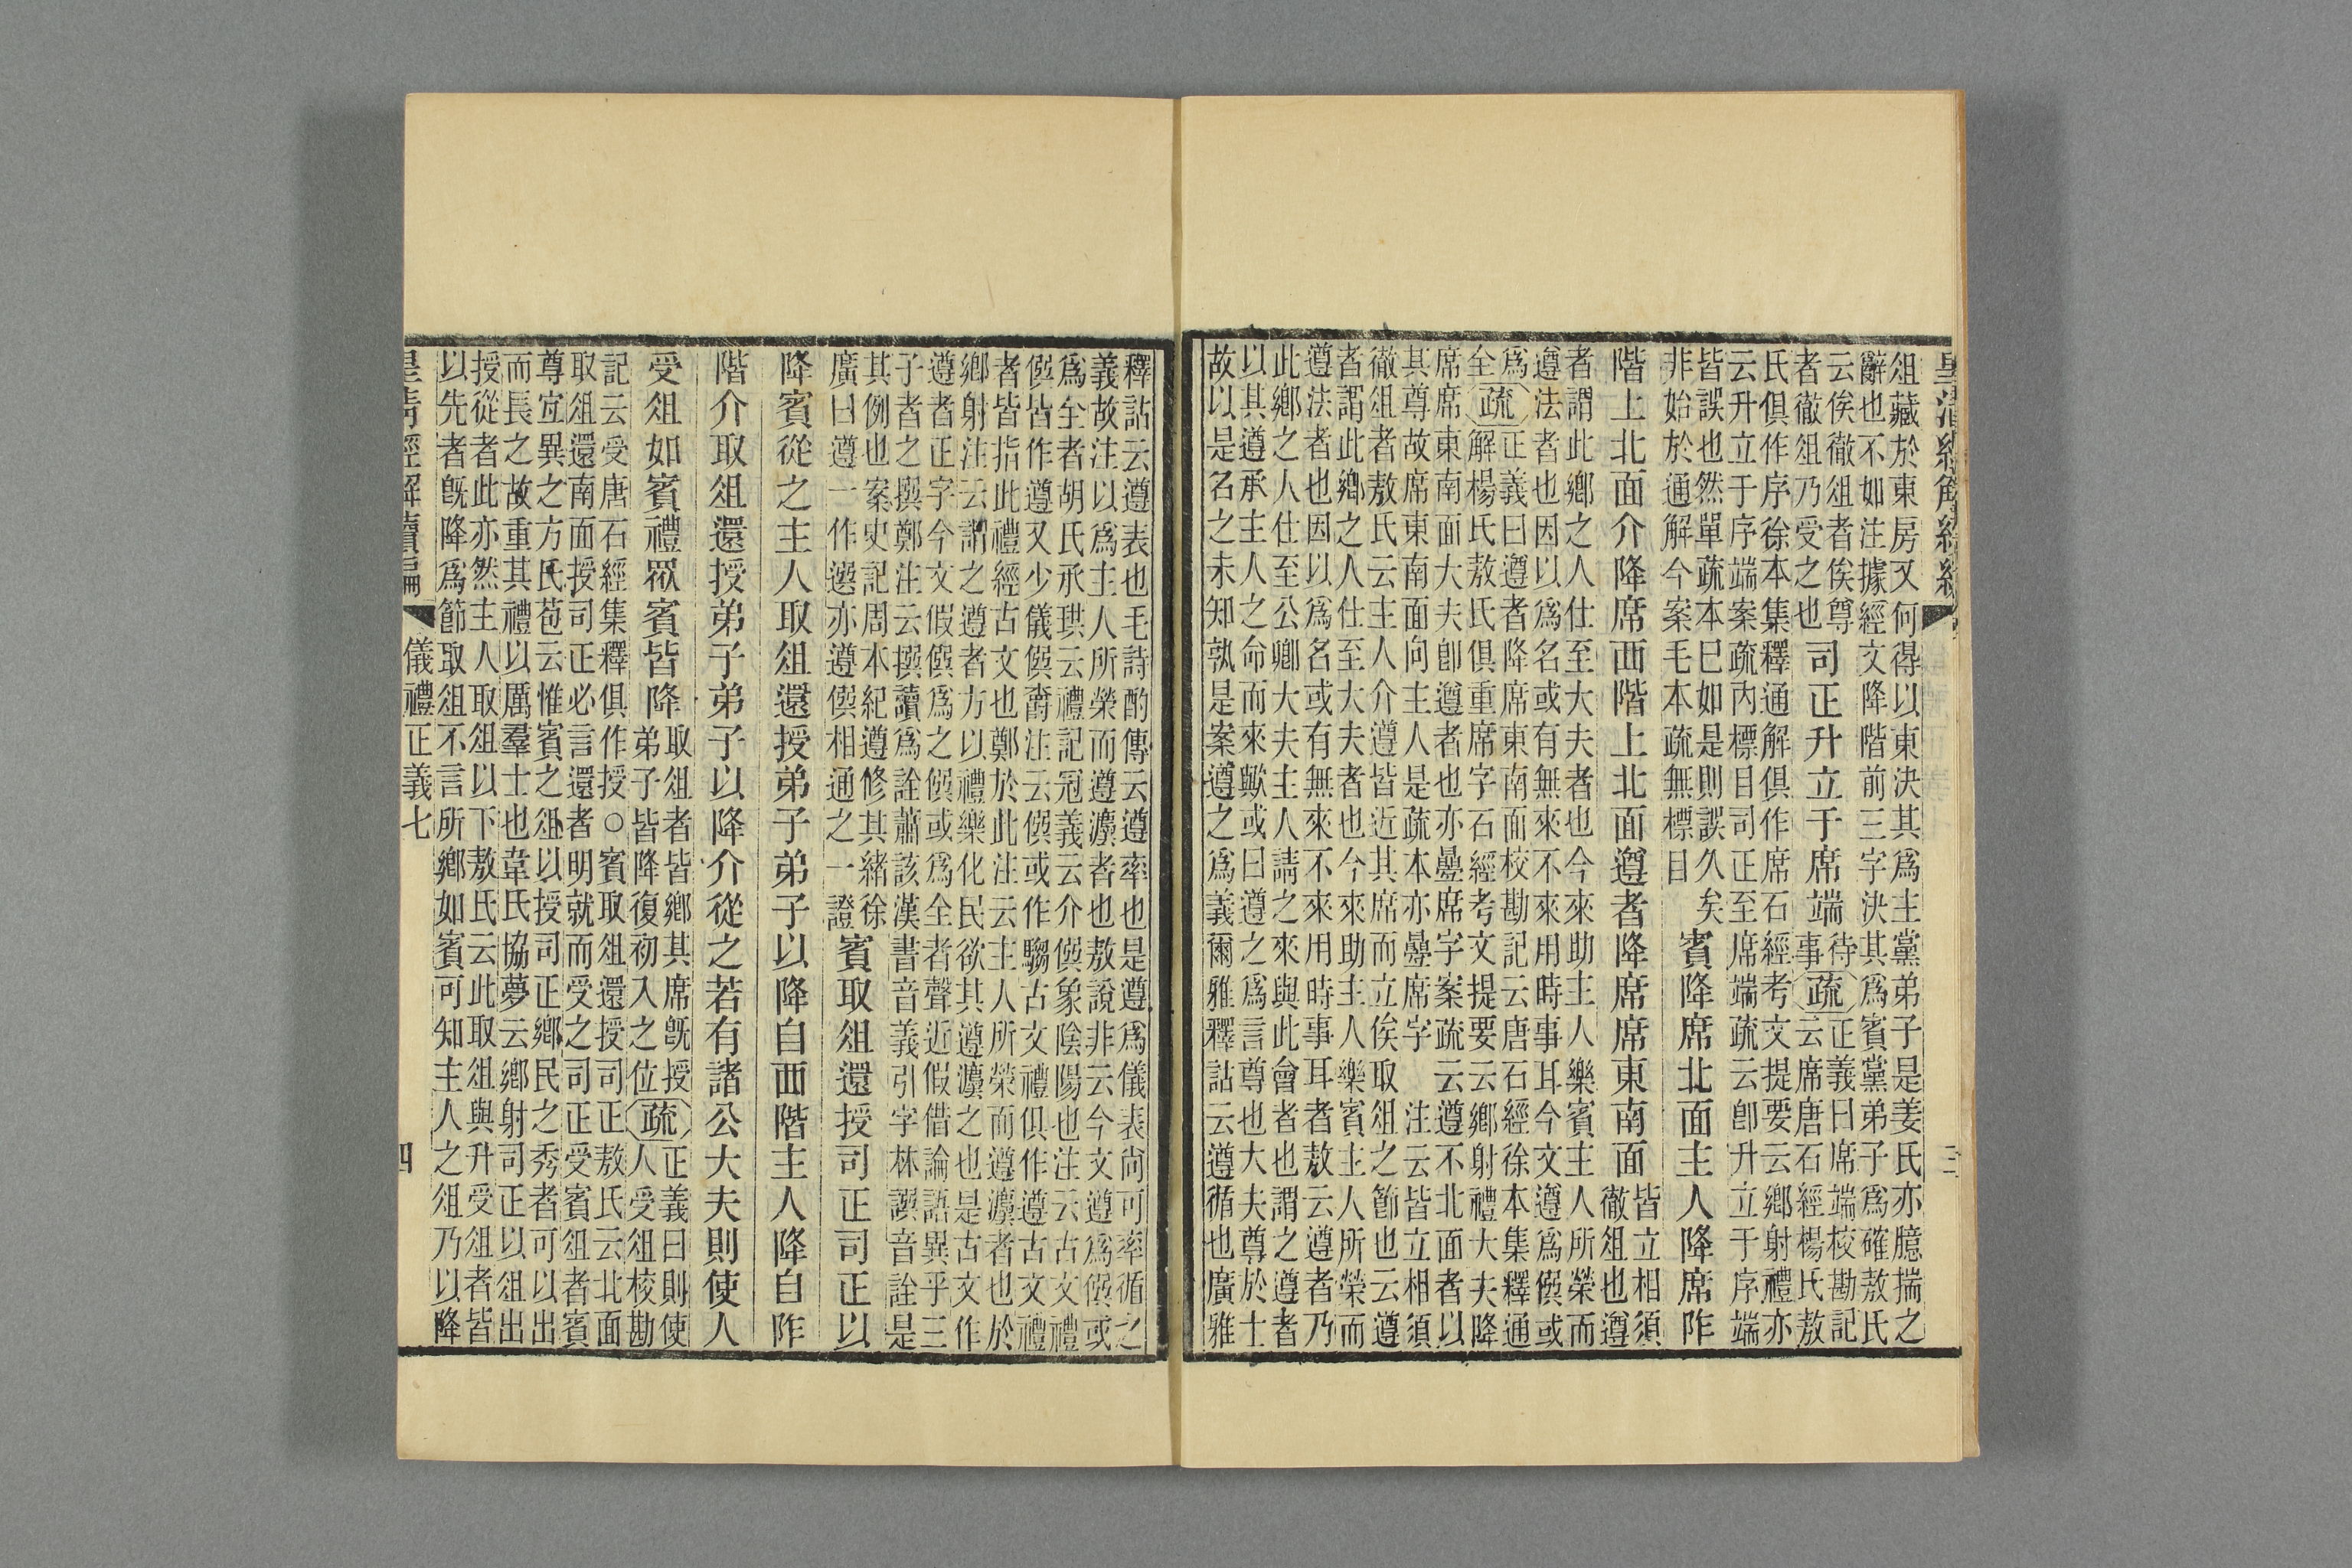 俎藏於東房又何得以東決其爲主黨弟子是姜氏亦臆揣之
辭也不如注據經文降階前三字決其爲賓黨弟子爲確敖氏
云俟徹俎者俟尊
者徹俎乃受之也
司正升立于席端
待
事
疏
正義曰席端校勘記
云席唐石經楊氏敖
氏俱作序徐本集釋通解俱作席石經考文提要云鄉射禮亦
云升立于序端案疏內標目司正至席端疏云卽升立于序端
皆誤也然單疏本已如是則誤久矣
非始於通解今案毛本疏無標目
賓降席北面主人降席阼
階上北面介降席西階上北面遵者降席席東南面
皆立相須
徹俎也遵
者謂此鄉之人仕至大夫者也今來助主人樂賓主人所榮而
遵法者也因以爲名或有無來不來用時事耳今文遵爲僎或
爲全
疏
正義曰遵者降席東南面校勘記云唐石經徐本集釋通
解楊氏敖氏俱重席字石經考文提要云鄉射禮大夫降
席席東南面大夫卽遵者也亦疊席字案疏云遵不北面者以
其尊故席東南面向主人是疏本亦疊席字 注云皆立相須
徹俎者敖氏云主人介遵皆近其席而立俟取俎之節也云遵
者謂此鄉之人仕至大夫者也今來助主人樂賓主人所榮而
遵法者也因以爲名或有無來不來用時事耳者敖云遵者乃
此鄉之人仕至公卿大夫主人請之來與此會者也謂之遵者
以其遵承主人之命而來歟或曰遵之爲言尊也大夫尊於士
故以是名之未知孰是案遵之爲義爾雅釋詁云遵循也廣雅
釋詁云遵表也毛詩酌傳云遵率也是遵爲儀表尚可率循之
義故注以爲主人所榮而遵灋者也敖說非云今文遵爲僎或
爲全者胡氏承珙云禮記冠義云介僎象陰陽也注云古文禮
僎皆作遵又少儀僎爵注云僎或作騶古文禮俱作遵古文禮
者皆指此禮經古文也鄭於此注云主人所榮而遵灋者也於
鄉射注云謂之遵者方以禮樂化民欲其遵灋之也是古文作
遵者正字今文假僎爲之僎或爲全者聲近假借論語異乎三
子者之撰鄭注云撰讀爲詮蕭該漢書音義引字林譔音詮是
其例也案史記周本紀遵修其緒徐
廣曰遵一作選亦遵僎相通之一證
賓取俎還授司正司正以
降賓從之主人取俎還授弟子弟子以降自西階主人降自阼
階介取俎還授弟子弟子以降介從之若有諸公大夫則使人
受俎如賓禮眾賓皆降
取俎者皆鄉其席旣授
弟子皆降復初入之位
疏
正義曰則使
人受俎校勘
記云受唐石經集釋俱作授○賓取俎還授司正敖氏云北面
取俎還南面授司正必言還者明就而受之司正受賓俎者賓
尊宜異之方氏苞云惟賓之俎以授司正鄉民之秀者可以出
而長之故重其禮以厲羣士也韋氏協夢云鄉射司正以俎出
授從者此亦然主人取俎以下敖氏云此取俎與升受俎者皆
以先者旣降爲節取俎不言所鄉如賓可知主人之俎乃以降
儀禮正義七
四